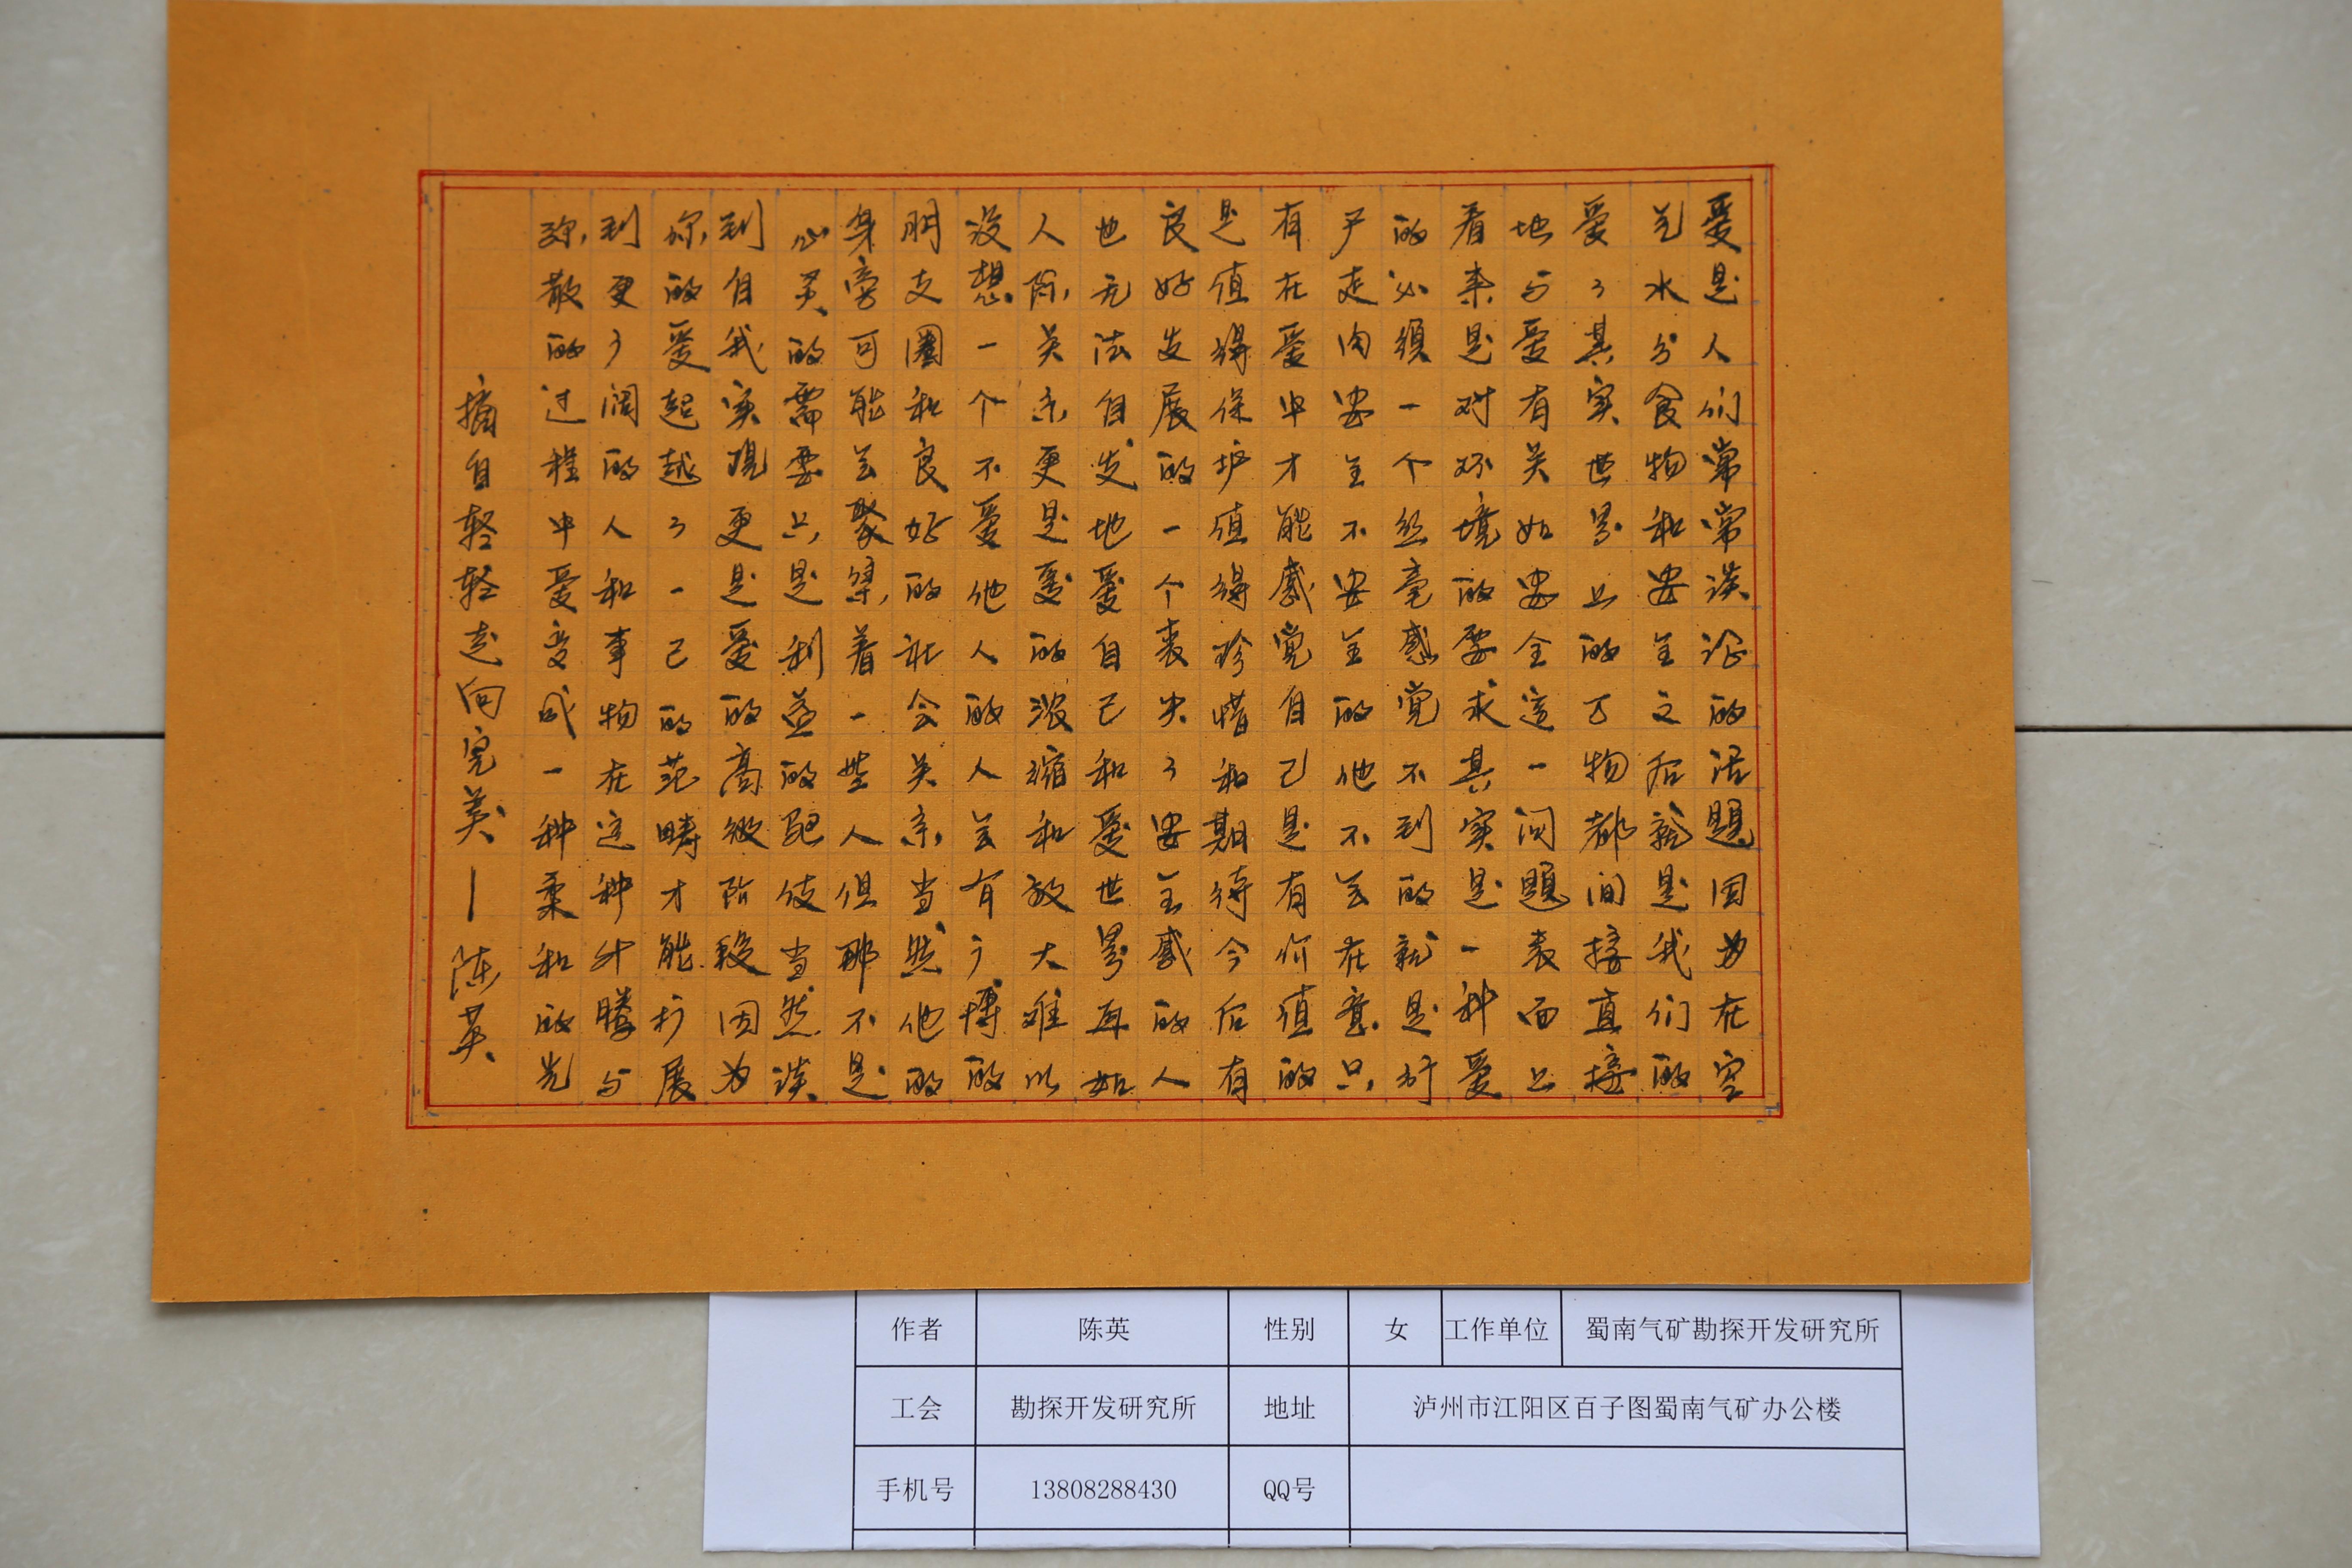 爱是人们常常谈论的话题因为在空
气水分食物和安全之后就是我们的
爱了其实世界上的万物都间接直接
地与爱有关如安全这一问题表面上
看来是对环境的要求其实是一种爱
的必须一个丝毫感觉不到的就是行
尸走肉安全不安全的他不会在意只
有在爱中才能感觉自己是有价值的
是值得保护值得珍惜和期待今后有
良好发展的一个丧失了安全感的人
也无法自发地爱自己和爱世界再如
人际关系更是爱的浓缩和放大难以
没想一个不爱他人的人会有广博的
朋友圈和良好的社会关系当然他的
身旁可能会聚集着一些人但那不是
心灵的需要只是利益的配伎当然谈
到自我实现更是爱的高级阶段因为
你的爱起越了一己的范畴才能扩展
到更广阔的人和事物在这种升腾与
弥散的过程中爱变成一种柔和的光
摘自轻轻走向完美—陈英
作者 陈英 性别 女 工作单位 蜀南气矿勘探开发研究所
工会 勘探开发研究所 地址 泸州市江阳区百子图蜀南气矿办公楼
手机号 13808288430 QQ号